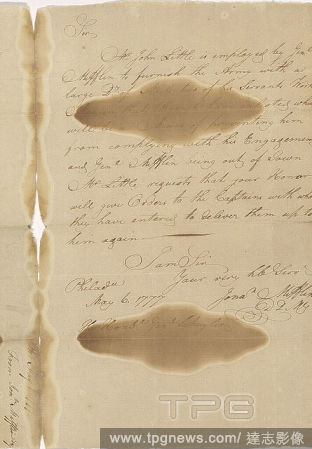 Sir
Mr. John Little is employed by Genl.
Mifflin to furnish the Army with a
large of his Servants
will be
from complying with his Engagement
and Genl. Mifflin being out of Town
Mr. Little requests that your Honor
will give Orders to the Captains with whom
they have entered to deliver them up to
him again
I am Sir
Your very hble Servt.
Philada.
May 6. 1777
Jona. Mifflin
D. Q. M. G.
From Jona. Mifflin
TPG
www.tpgnews.com/達志影像